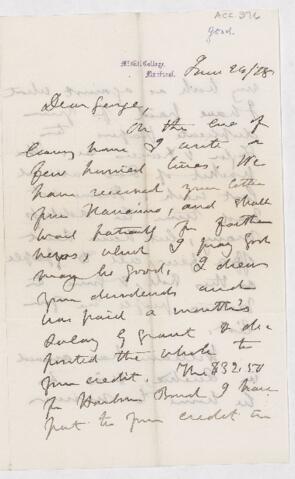 ACC 376
geod.
McGill College,
Montreal.
June 26/78
Dear George,
On the Eve of
leaving home I write a
few hurried lines. We
have received your letter
from Nanaimo, and shall
wait patiently for further
news, which I pray God
may be good. I drew
your dividends and
was paid a month's
Salary & grant, & de-
posited the whole to
your credit. The $32.50
for Harbour Bond I have
put to your credit in